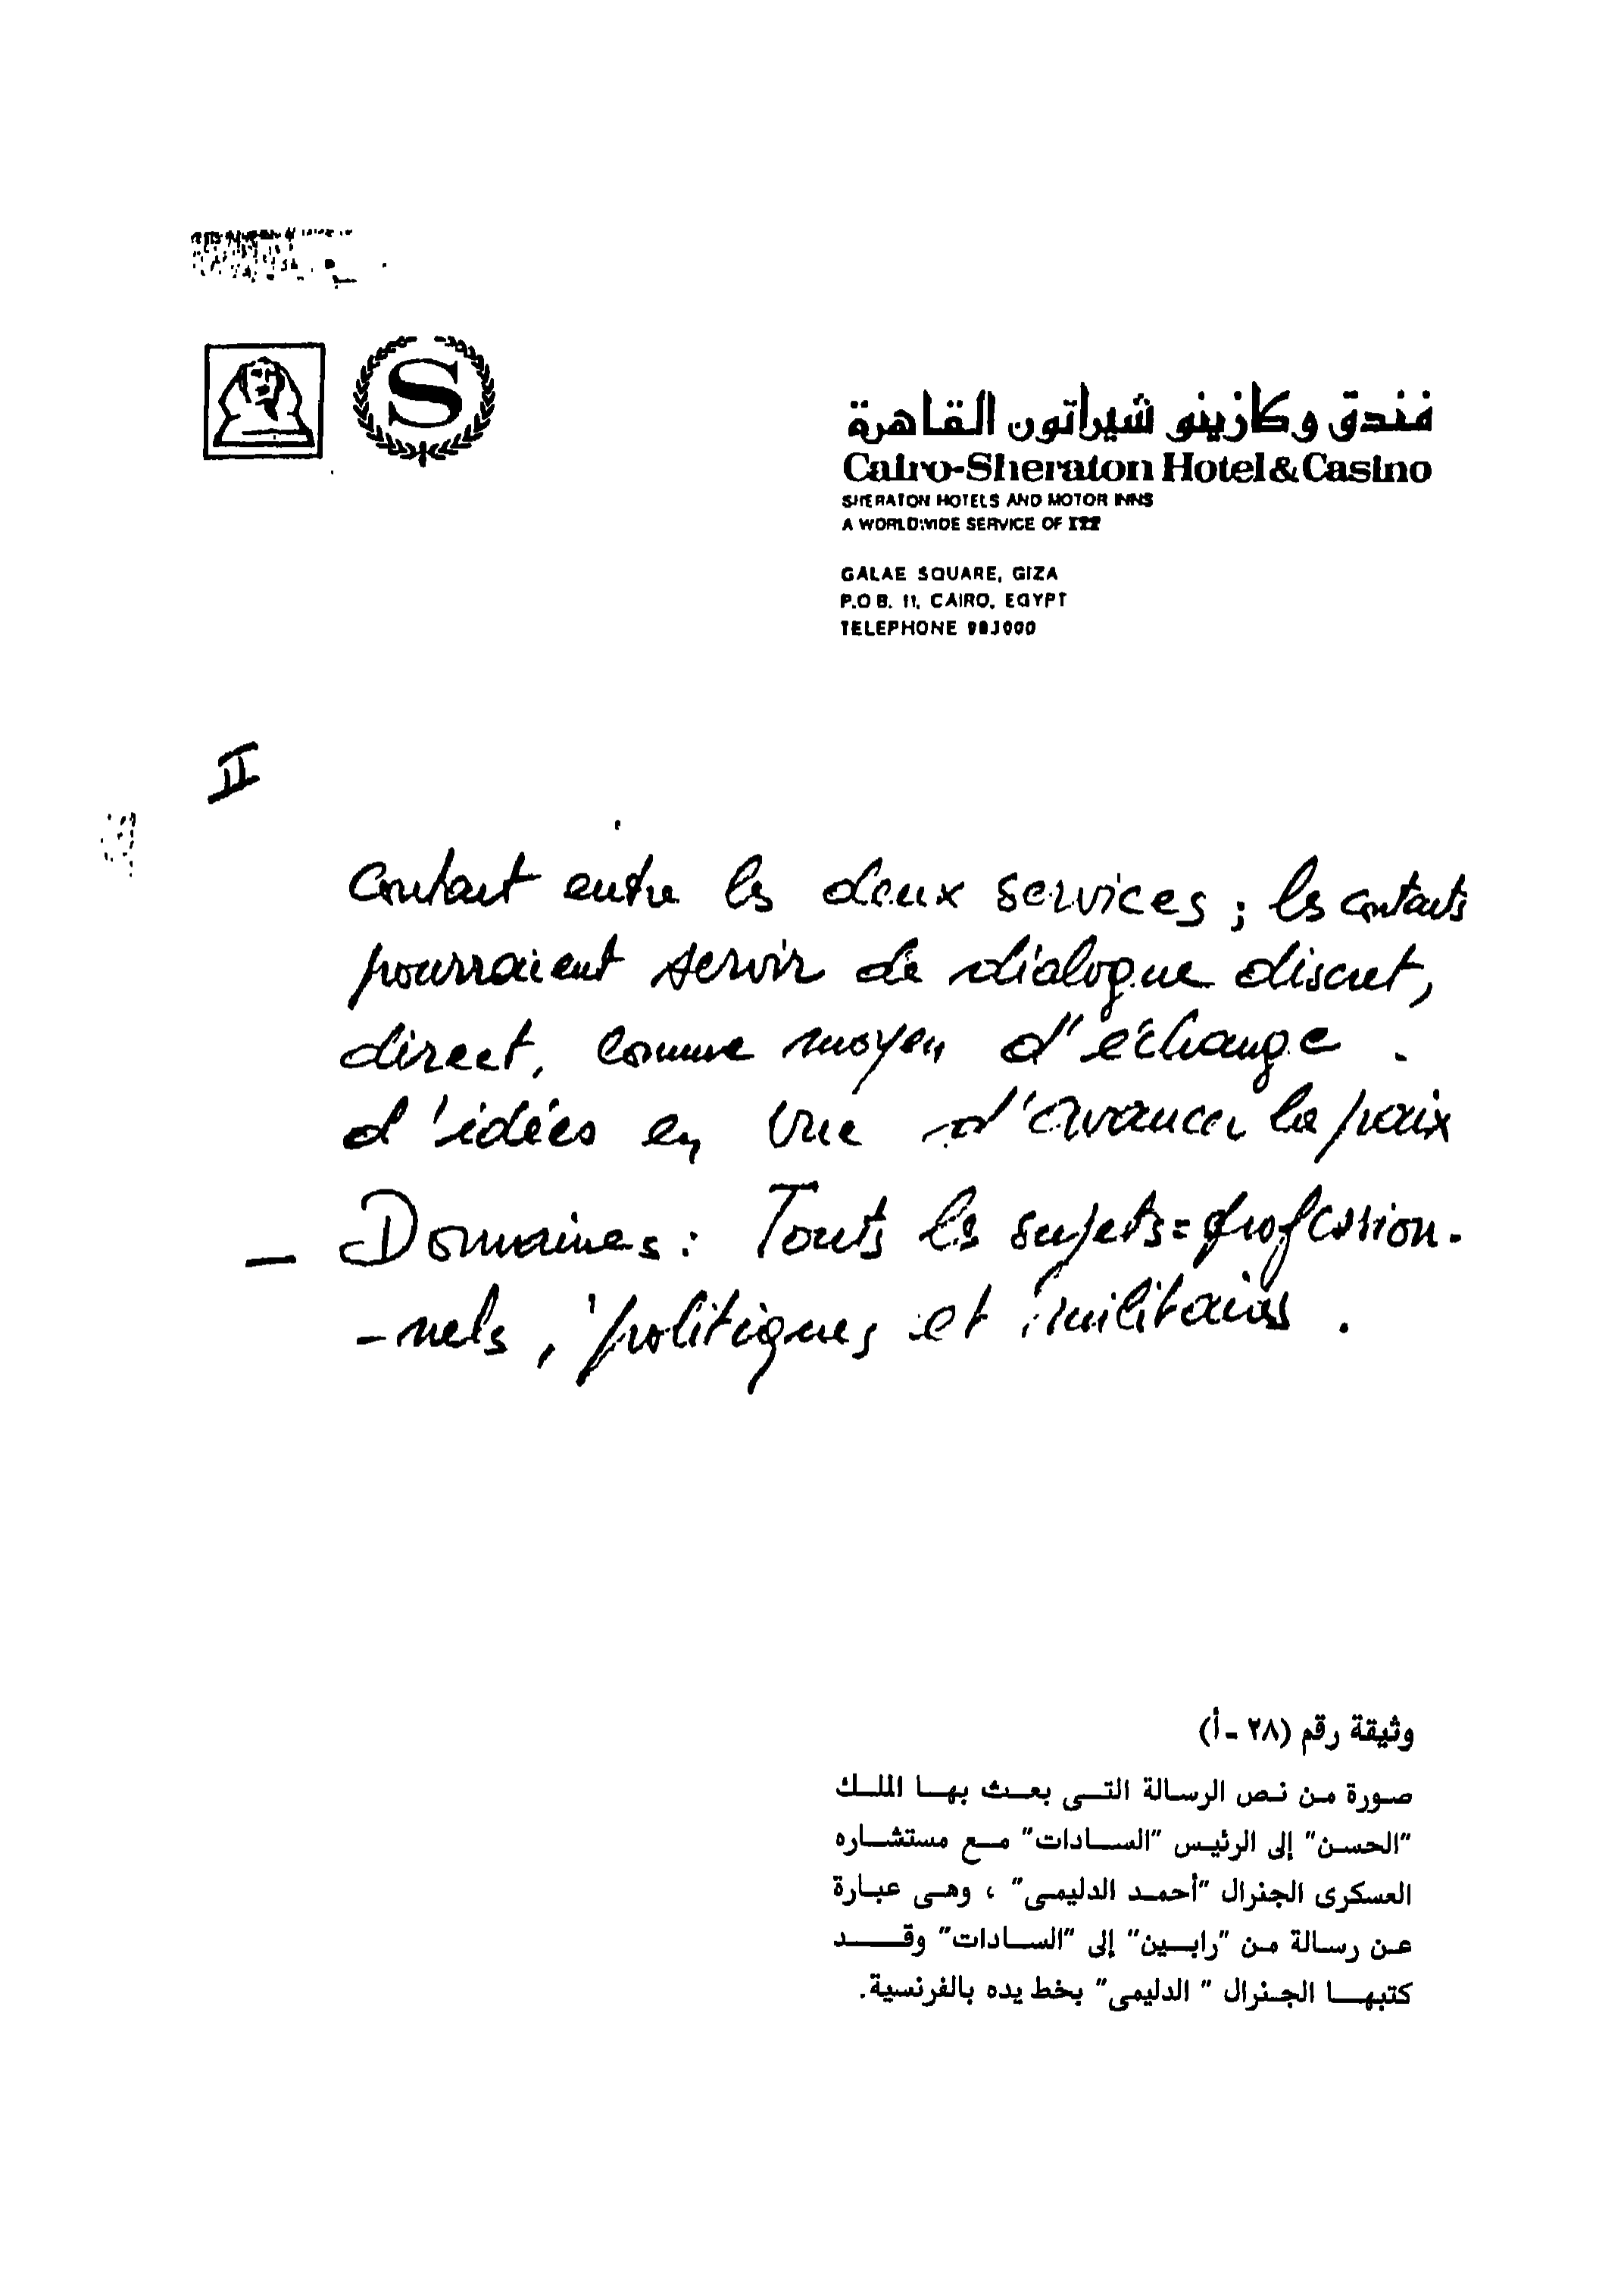 S
فندق وكازينو شيراتون القاهرة
Cairo-Sheraton Hotel & Casino
SHERATON HOTELS AND MOTOR INNS
A WORLDWIDE SERVICE OF ITT
GALAE SQUARE, GIZA
P.O B. 11, CAIRO, EGYPT
TELEPHONE
II
Contact entre les deux services ; les contacts
pourraient servir de dialogue discret,
direct, comme moyen d'échange
d'idées en vue d'avancer la paix
— Domaines : Touts les sujets = profession-
-nels, politiques et militaires.
وثيقة رقم (٢٨ - أ)
صورة من نص الرسالة التى بعث بها الملك
"الحسن" إلى الرئيس "السادات" مع مستشاره
العسكرى الجنرال "أحمد الدليمى" ، وهى عبارة
عن رسالة من "رابين" إلى "السادات" وقد
كتبها الجنرال " الدليمى" بخط يده بالفرنسية.